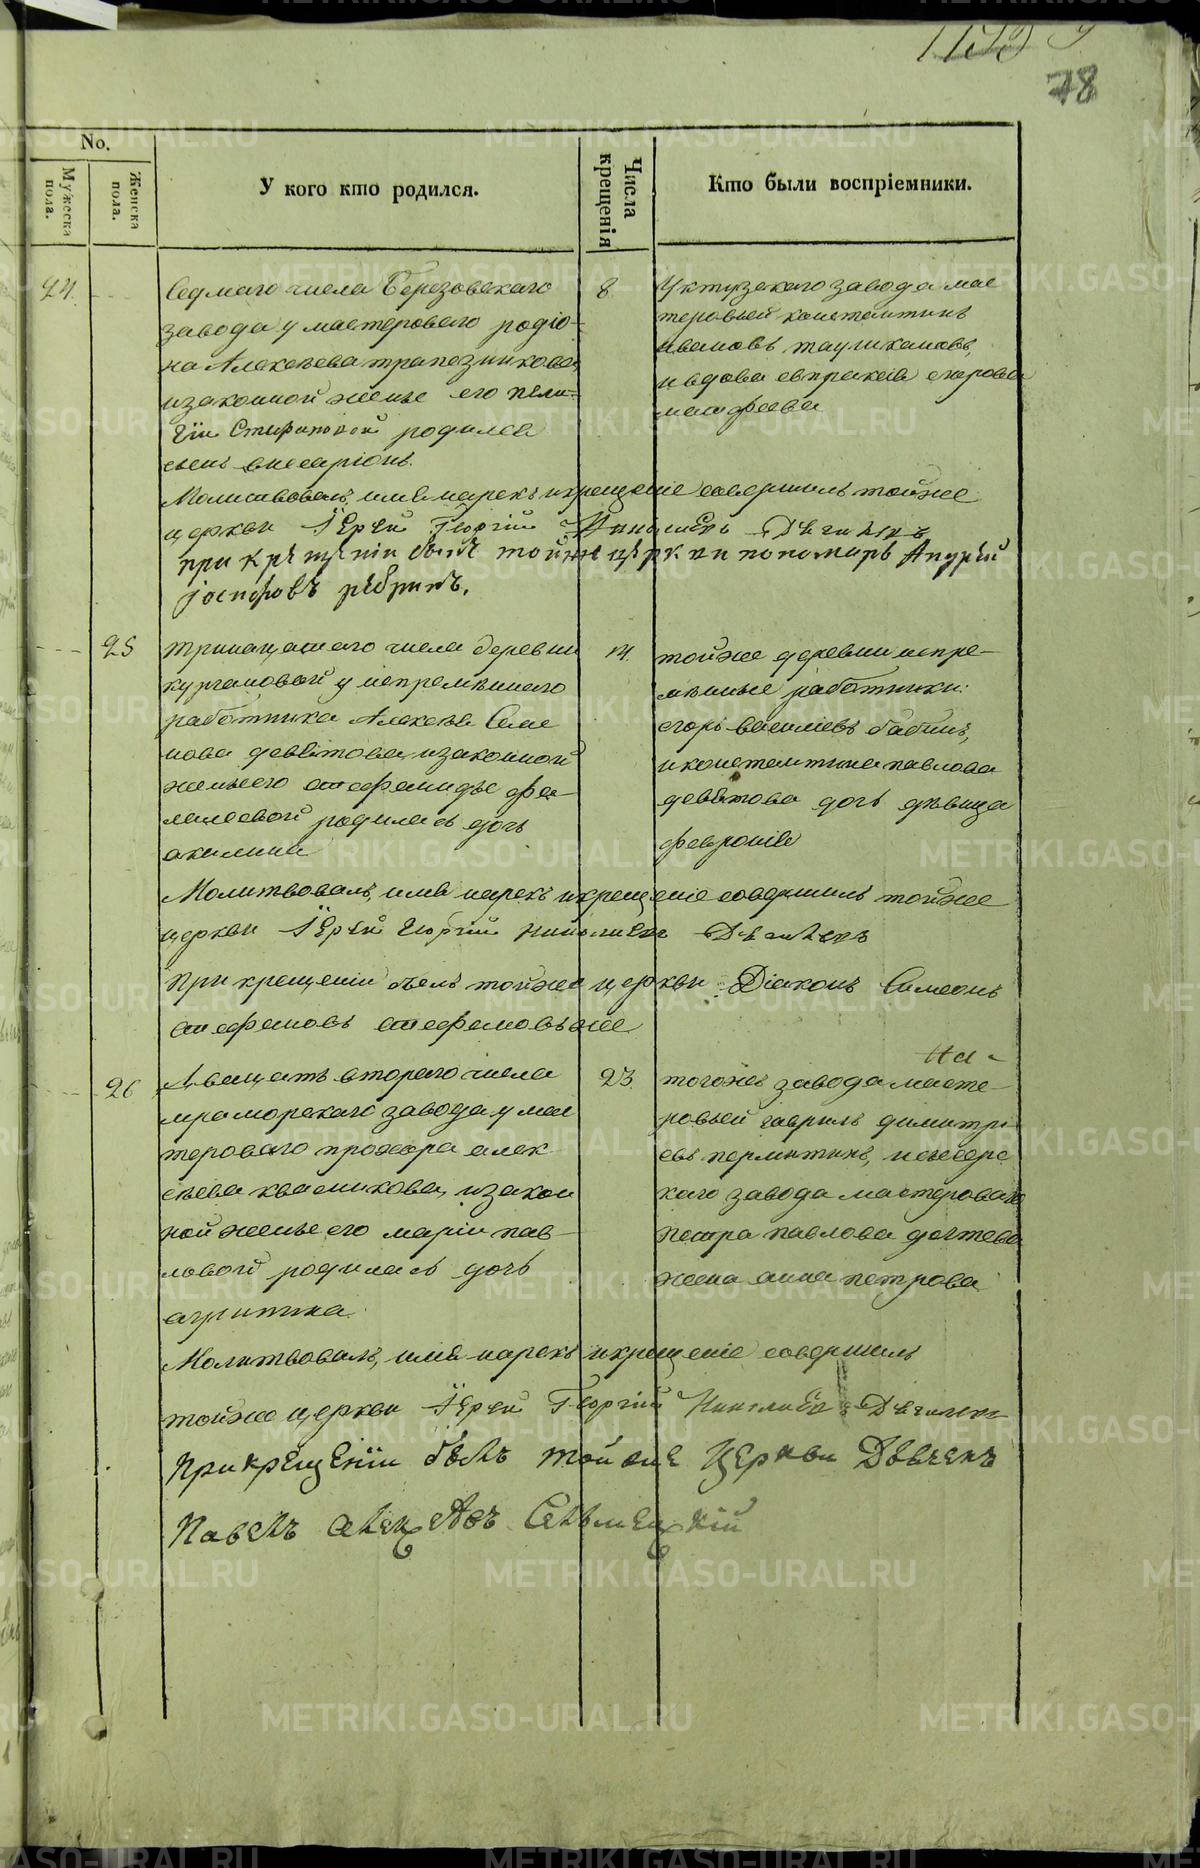 78
No.
Мужеска пола.
Женска пола.
У кого кто родился.
Числа крещенія
Кто были воспріемники.
24.
Седмаго числа Березовскаго
завода у мастероваго родіо-
на Алексѣева трапезникова,
изаконной жены его пела-
гіи родился
сынъ висаріонъ.
8
Уктузскаго завода мас
теровый константинъ
ивановъ
ивдова евпраксія егорова
Молитвовалъ, имя нарекъ и крещеніе совершилъ тойже
церкви Іерей Георгій
при крещеніи былъ тойже церкви пономарь Андрей
іосифовъ
25
тринацатаго числа деревни
кургановой у непремѣннаго
работника Алексѣя Семе
нова девятова, изаконной
жены его стефаниды
родилась дочь
акилина
14.
тойже деревни непре-
мѣнные работники:
егоръ василіевъ бабинъ,
иконстантина павлова
девятова дочь дѣвица
февронія
Молитвовалъ, имя нарекъ и крещеніе совершилъ тойже
церкви Іерей Георгій
При крещеніи былъ тойже церкви Діаконъ Симеонъ
стефановъ
26
Двацать втораго числа
мраморскаго завода у мас
тероваго прохора алек
сѣева квасникова, изакон
ной жены его маріи пав-
ловой родилась дочь
агрипина
23.
тогожъ завода масте-
ровый гавріилъ димитрі
евъ
каго завода мастероваго
петра павлова
жена анна петрова
Молитвовалъ, имя нарекъ и крещеніе совершилъ
тойже церкви Іерей Георгій
При крещеніи былъ тойже Церкви
Павелъ
METRIKI.GASO-URAL.RU